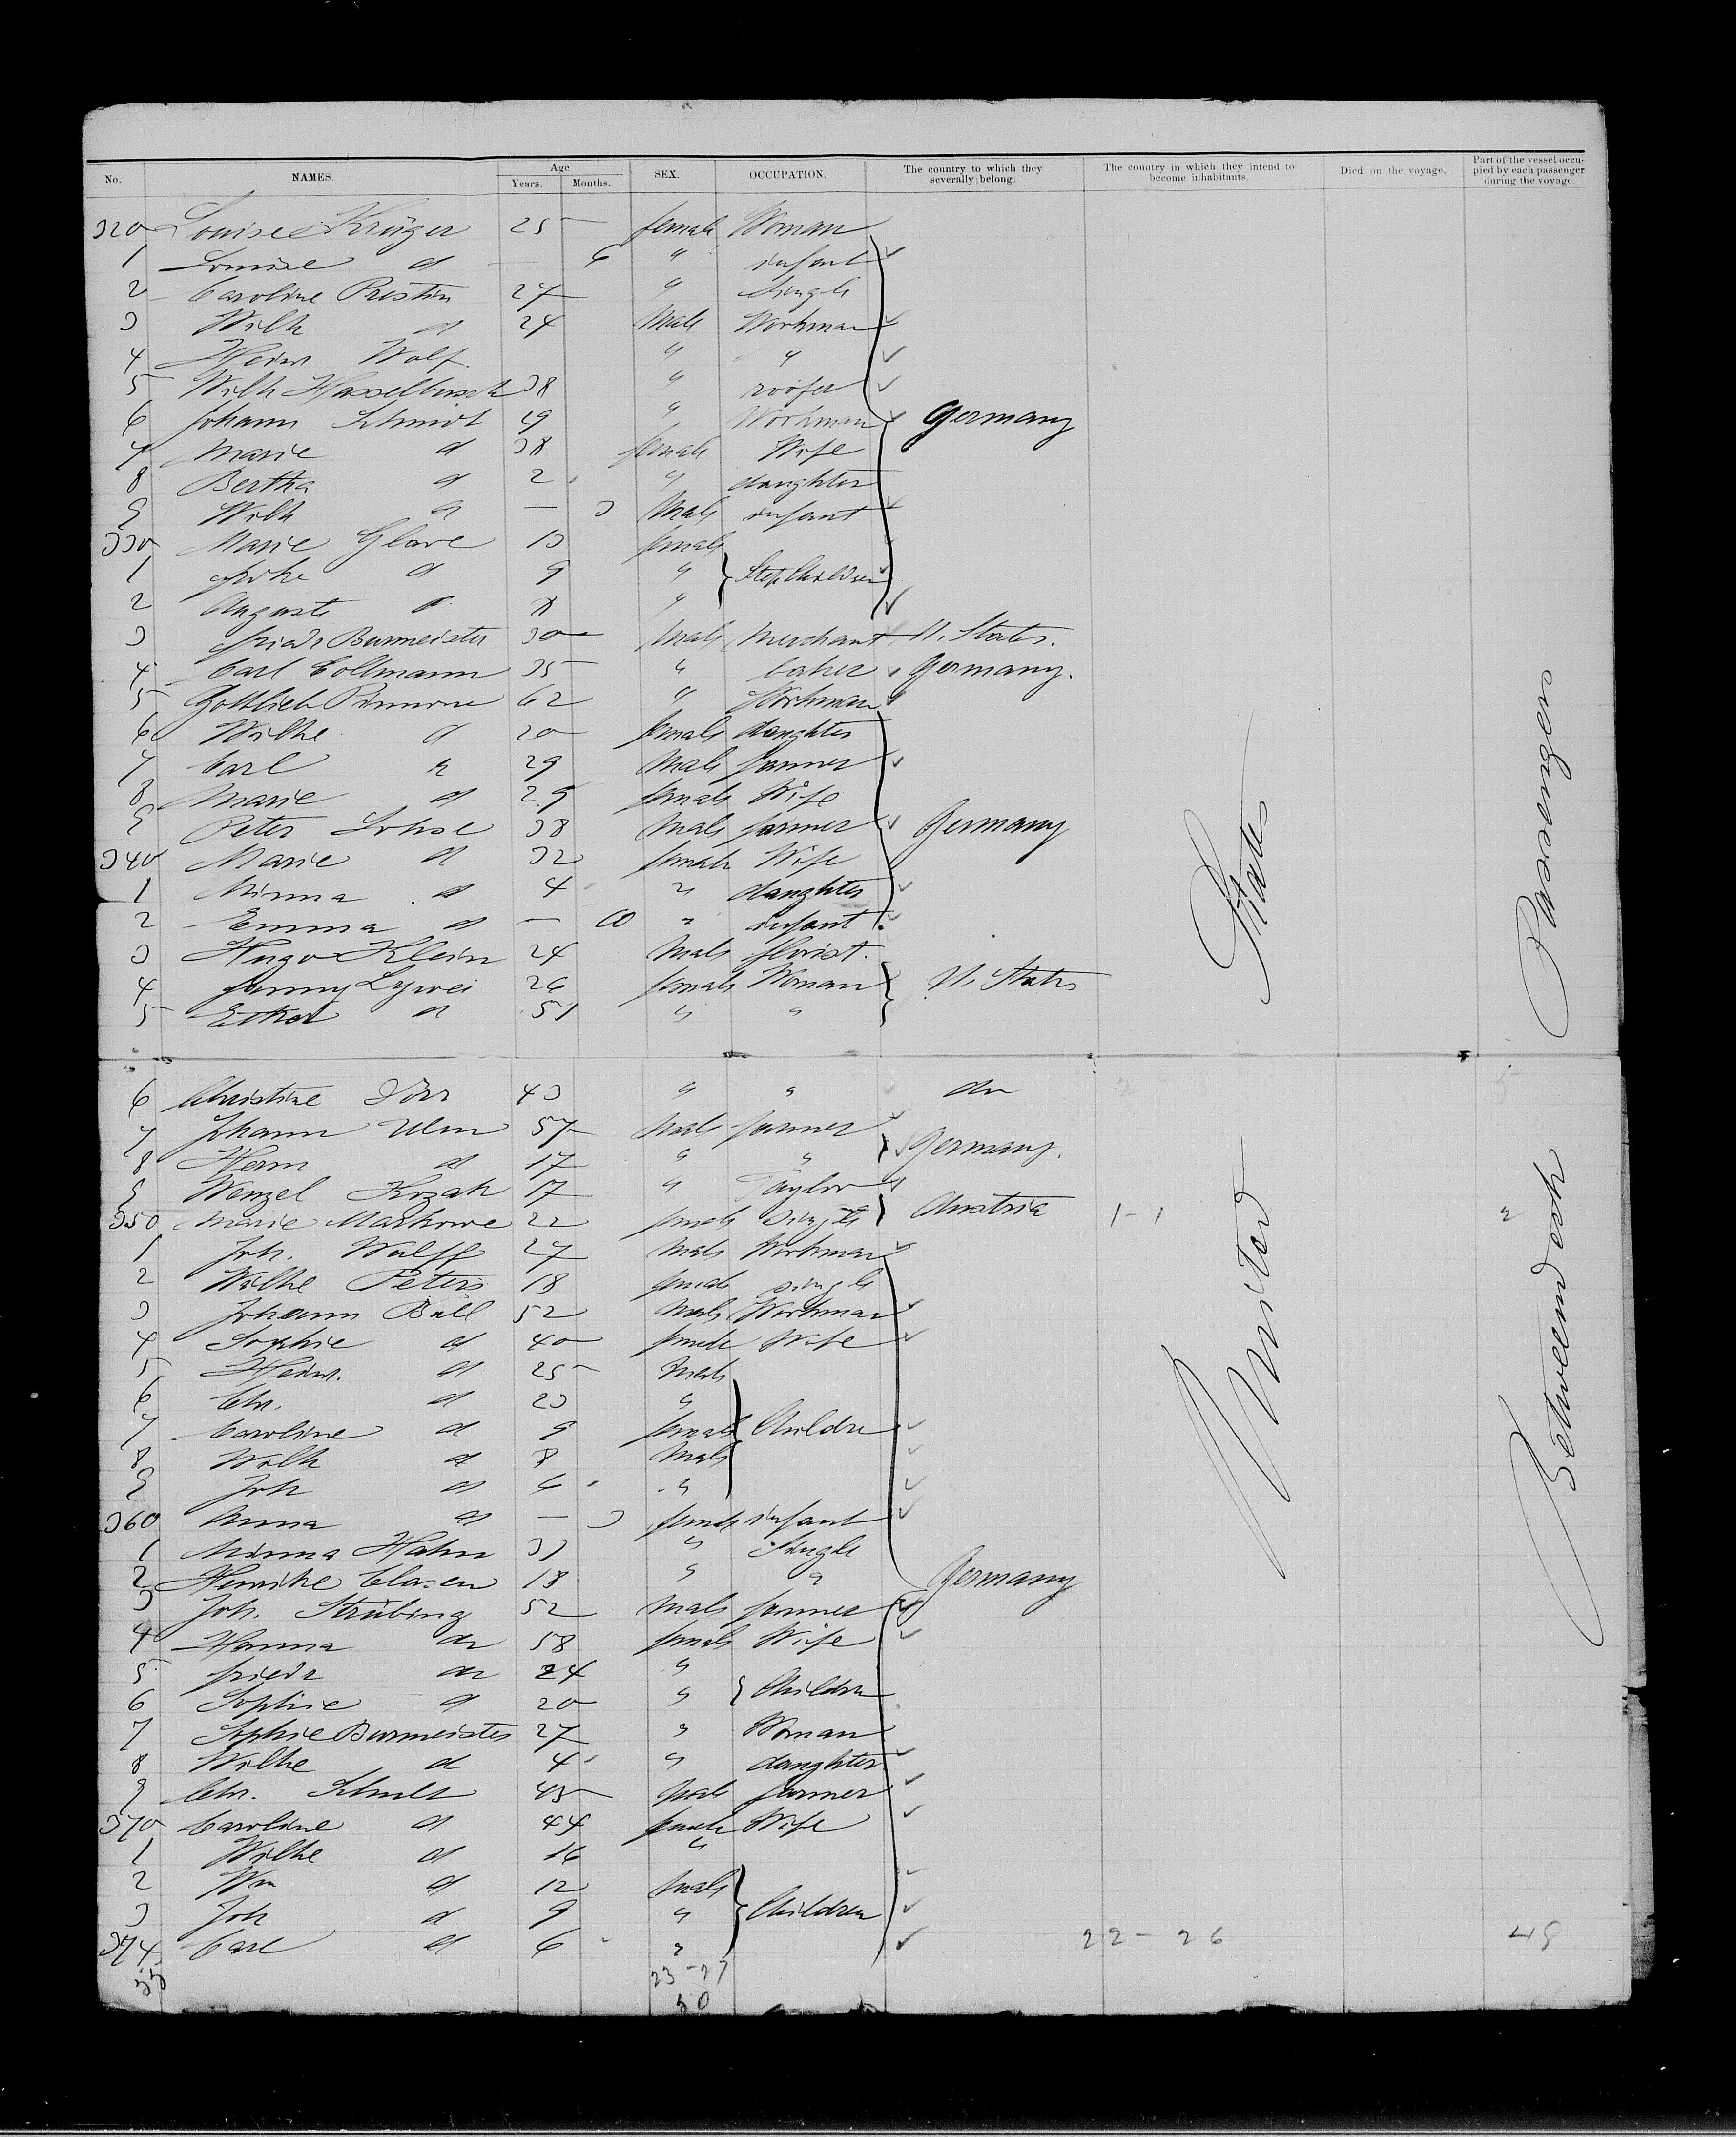 No. NAMES. Age Years. Months. SEX. OCCUPATION. The country to which they severally belong. The country in which they intend to become inhabitants. Died on the voyage. Part of the vessel occupied by each passenger during the voyage.
320 Louise Krüger 25 — female Woman
1 Louise d — 6 " infant
2 Caroline Prestin 27 " Single
3 Wilh d 24 Male Workman
4 Heinr Wolf. " "
5 Wilh Hasselbusch 38 " roofer
6 Johann Schmidt 29 " Workman Germany
7 Marie d 38 female Wife
8 Bertha d 2 " daughter
9 Wilh d — 3 Male infant
330 Marie Glave 13 female
1 Frike d 9 " Stepchildren
2 Auguste d 8 "
3 Friedr Burmeister 30 Male Merchant U. States.
4 Carl Collmann 35 " baker Germany.
5 Gottlieb 62 " Workman
6 Wilhe d 20 female daughter
7 Carl d 29 Male farmer
8 Marie d 29 female Wife
9 Peter Lohse 38 Male farmer Germany
340 Marie d 32 female Wife
1 Minna d 4 " daughter
2 Emma d — 10 " infant
3 Hugo Klein 24 Male florist.
4 Fanny 26 female Woman U. States
5 Esther d 51 " "
6 Christine Dörr 43 " " do
7 Johann Ulm 57 Male farmer Germany.
8 Herm d 17 " "
9 Wenzel Kozak 17 " Taylor
350 Marie Markowe 22 female Single Austria 1-1 2
1 Joh. Wulff 27 Male Workman
2 Wilhe Peters 18 female single
3 Johann Büll 52 Male Workman
4 Sophie d 40 female Wife
5 Heinr. d 25 Male
6 Chr. d 23 "
7 Caroline d 9 female Children
8 Wilh d 8 Male
9 Joh d 6 "
360 Anna d — 3 female infant
1 Minna Hahn 31 " Single
2 Henrike Clasen 18 " " Germany
3 Joh. Strübing 52 Male farmer
4 Hanna do 58 female Wife
5 Friedr do 24 "
6 Sophie d 20 " Children
7 Sophie Burmeister 27 " Woman
8 Wilhe d 4 " daughter
9 Chr. Schult 45 Male farmer
370 Caroline d 44 female Wife
1 Wilhe d 16 "
2 Wm d 12 Male
3 Joh d 9 " Children
374 Carl d 6 " 22-26 48
55 23-27
50
United States
Betweendeck Passengers